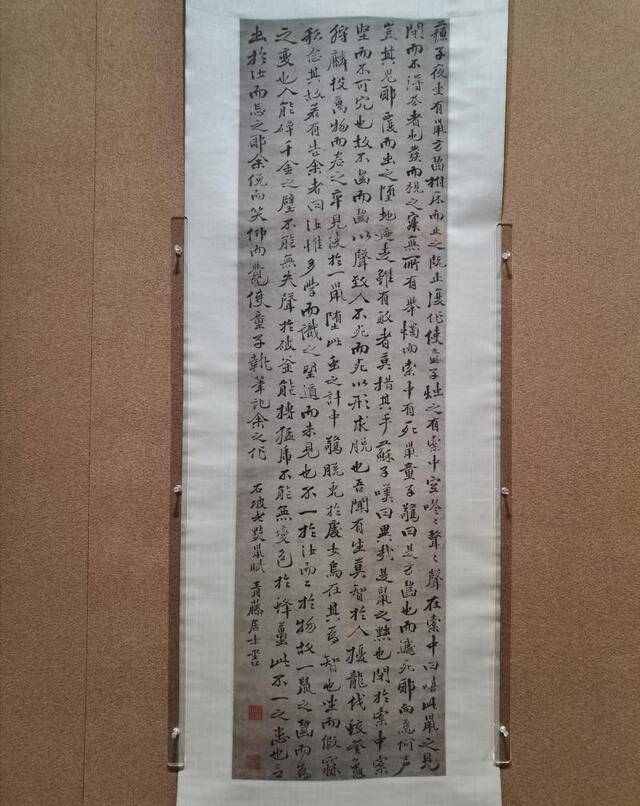 蘇子夜坐有鼠方齧拊床而止之既止復作使童子燭之有橐中空嘐〻聲〻聲在橐中曰嘻此鼠之見
閉而不得去者也發而視之寂無所有舉燭而索中有死鼠童子驚曰是方齧也而遽死耶向為何声
豈其鬼耶覆而出之墮地走雖有敏者莫措其手蘇子嘆曰異哉是鼠之黠也閉於橐中橐
堅而不可穴也故不齧而齧以聲致人不死而死以形求脫也吾聞有生莫智於人擾龍伐蛟登龜
狩麟役萬物而君之卒見使於一鼠墮此蟲之計中驚脫兎於處女烏在其為智也坐而假寐
私念其故若有告余者曰汝惟多學而識之望道而未見也不一於汝而二於物故一鼠之齧而為
之變也人能碎千金之璧不能無失聲於破釜能搏猛虎不能無變色於蜂蠆此不一之患也言
出於汝而忘之耶余俛而笑仰而覺使童子執筆記余之作
右坡老黠鼠賦 青藤居士書